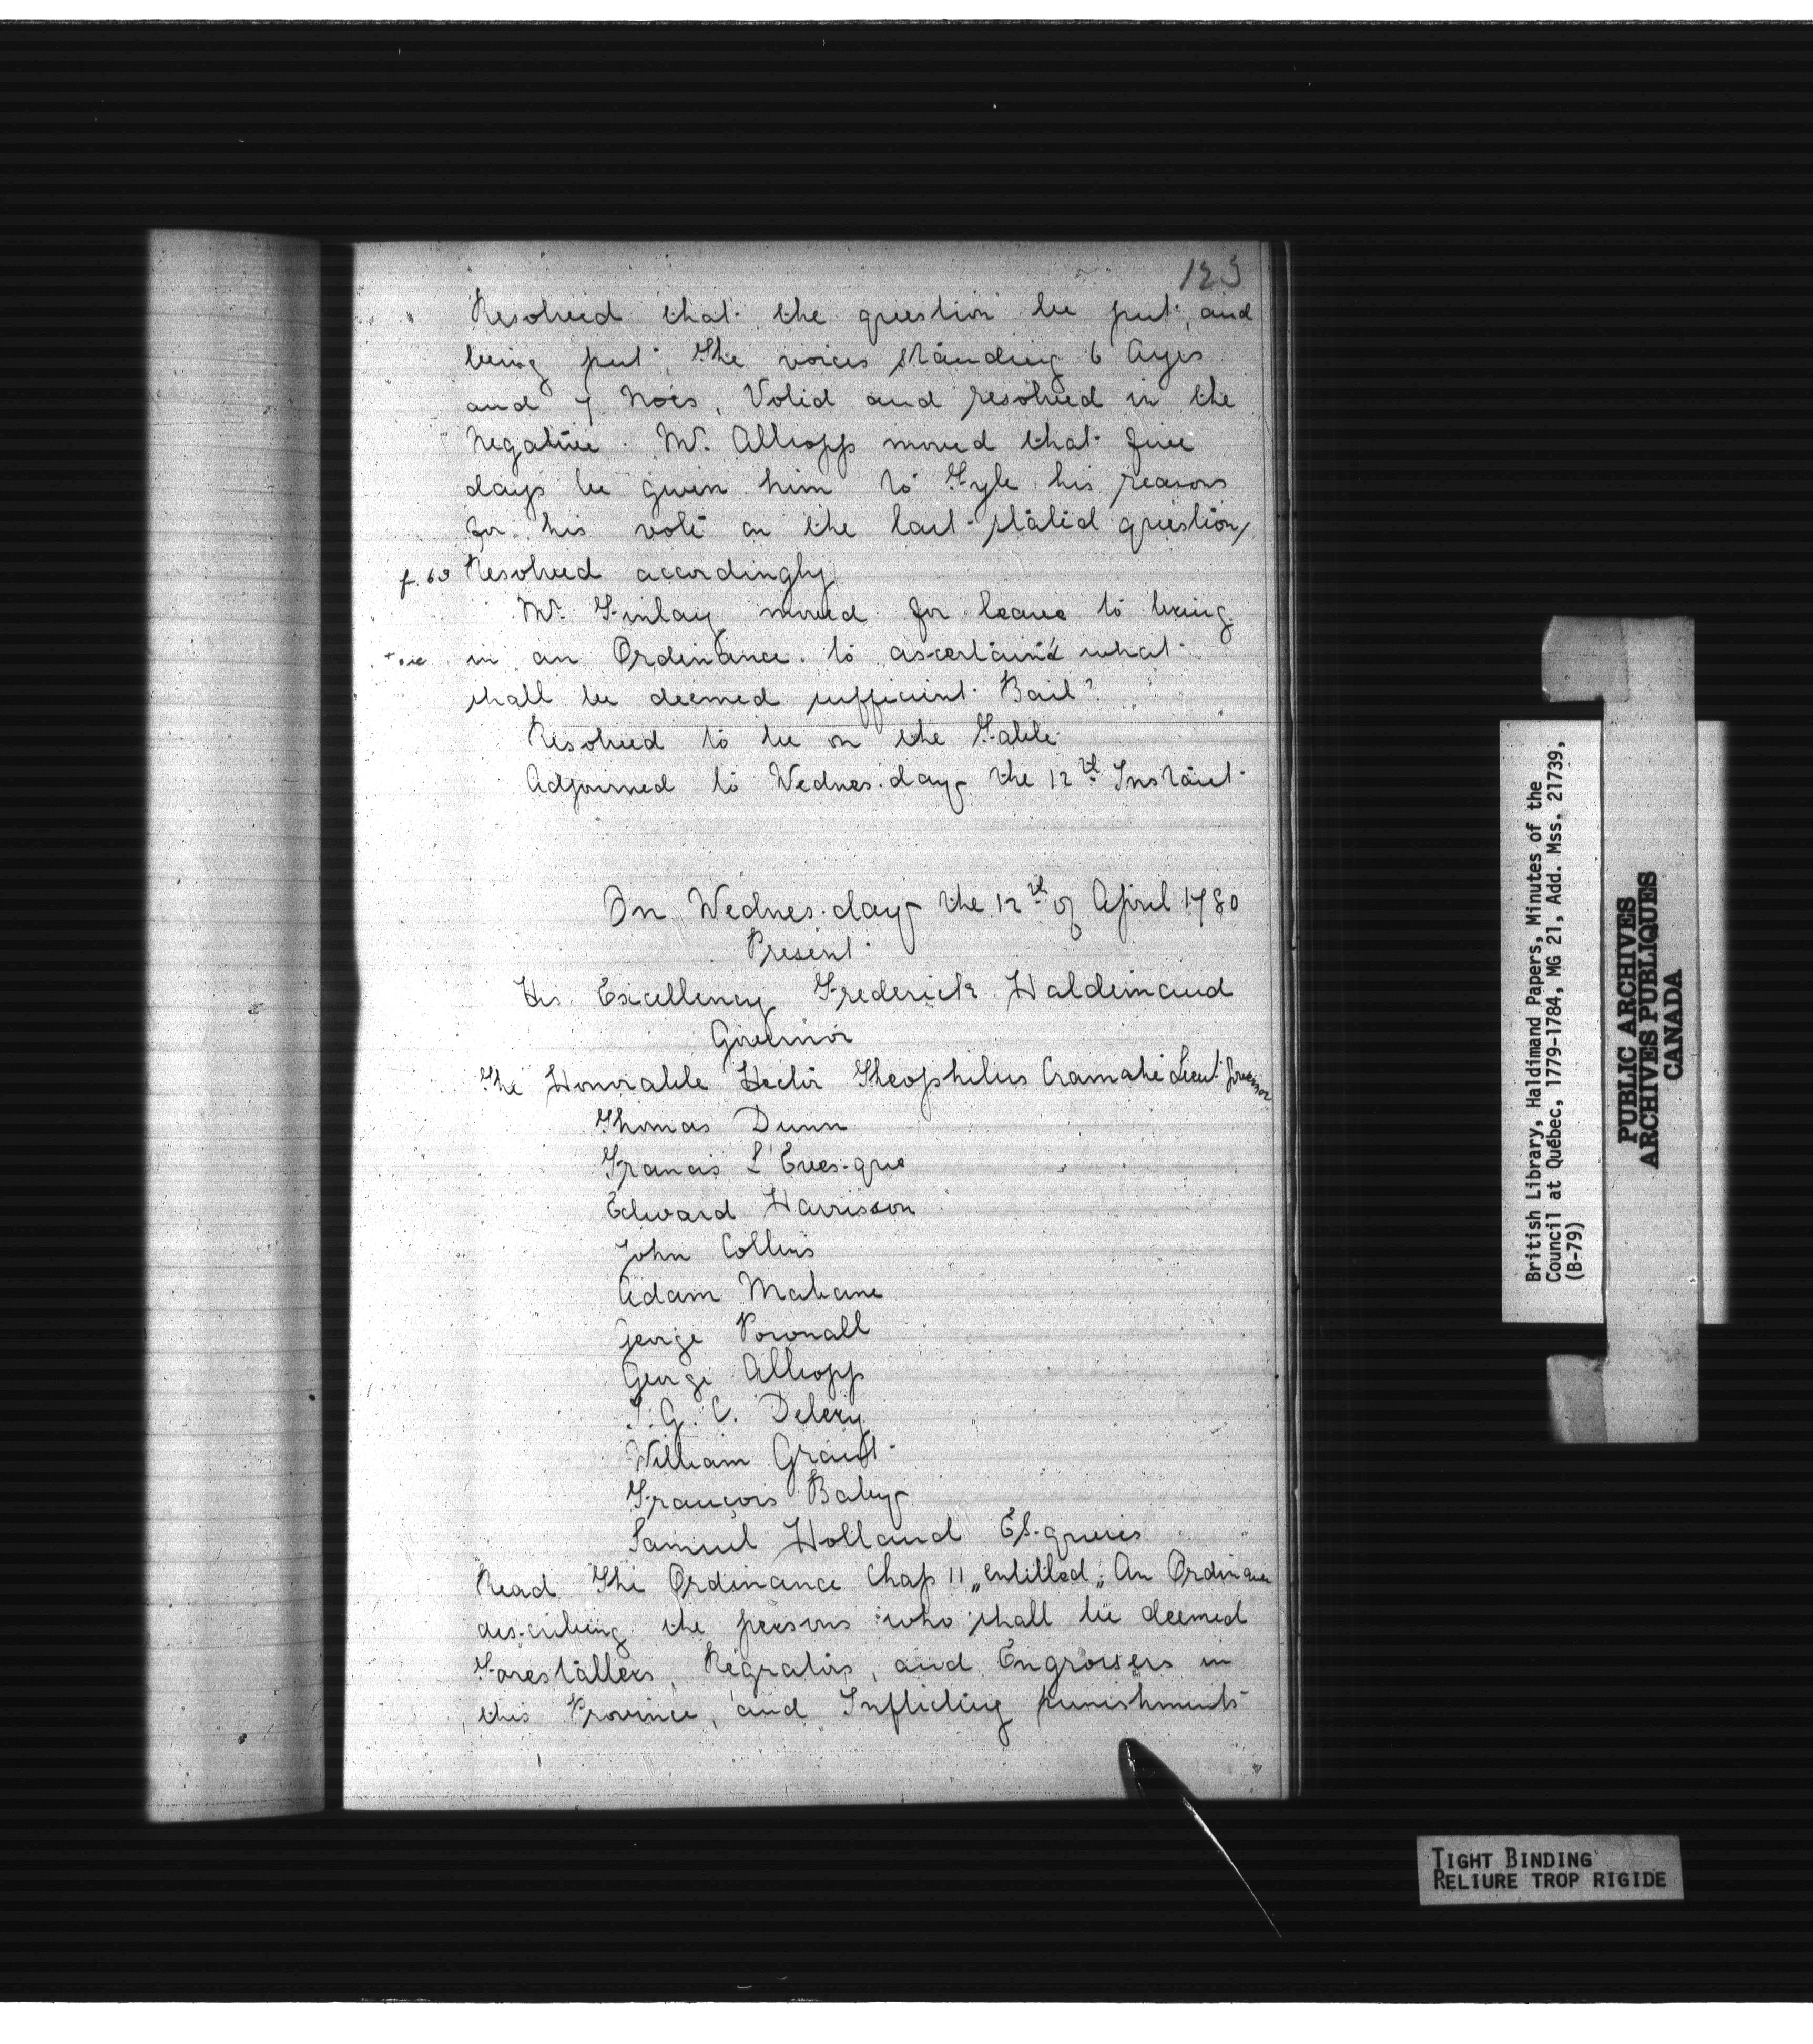 123
Resolved that the question be put, and
being put, The voices standing 6 Ayes
and 7 Noes, Voted and resolved in the
Negative. Mr. Allsopp moved that five
days be given him to Fyle his reasons
for his vote on the last stated question,
f. 63 Resolved accordingly
Mr. Finlay moved for leave to bring
+ sic in an Ordinance to ascertain'd what
shall be deemed sufficient Bail?
Resolved to lie on the Table
Adjourned to Wednesday the 12th Instant
On Wednesday the 12th of April 1780
Present
His Excellency Frederick Haldimand
Governor
The Honorable Hector Theophilus Cramahé Lieut. Governor
Thomas Dunn
Francis L'Evesque
Edward Harrisson
John Collins
Adam Mabane
George Pownall
George Allsopp
J. G. C. Delery
William Grant
François Baby
Samuel Holland Esquires
Read The Ordinance Chap 11 „entitled „ An Ordinance
describing the persons who shall be deemed
Forestallers, Regrators, and Engrossers in
this Province, and Inflicting punishments
British Library, Haldimand Papers, Minutes of the
Council at Québec, 1779-1784, MG 21, Add. Mss. 21739,
(B-79)
PUBLIC ARCHIVES
ARCHIVES PUBLIQUES
CANADA
TIGHT BINDING
RELIURE TROP RIGIDE